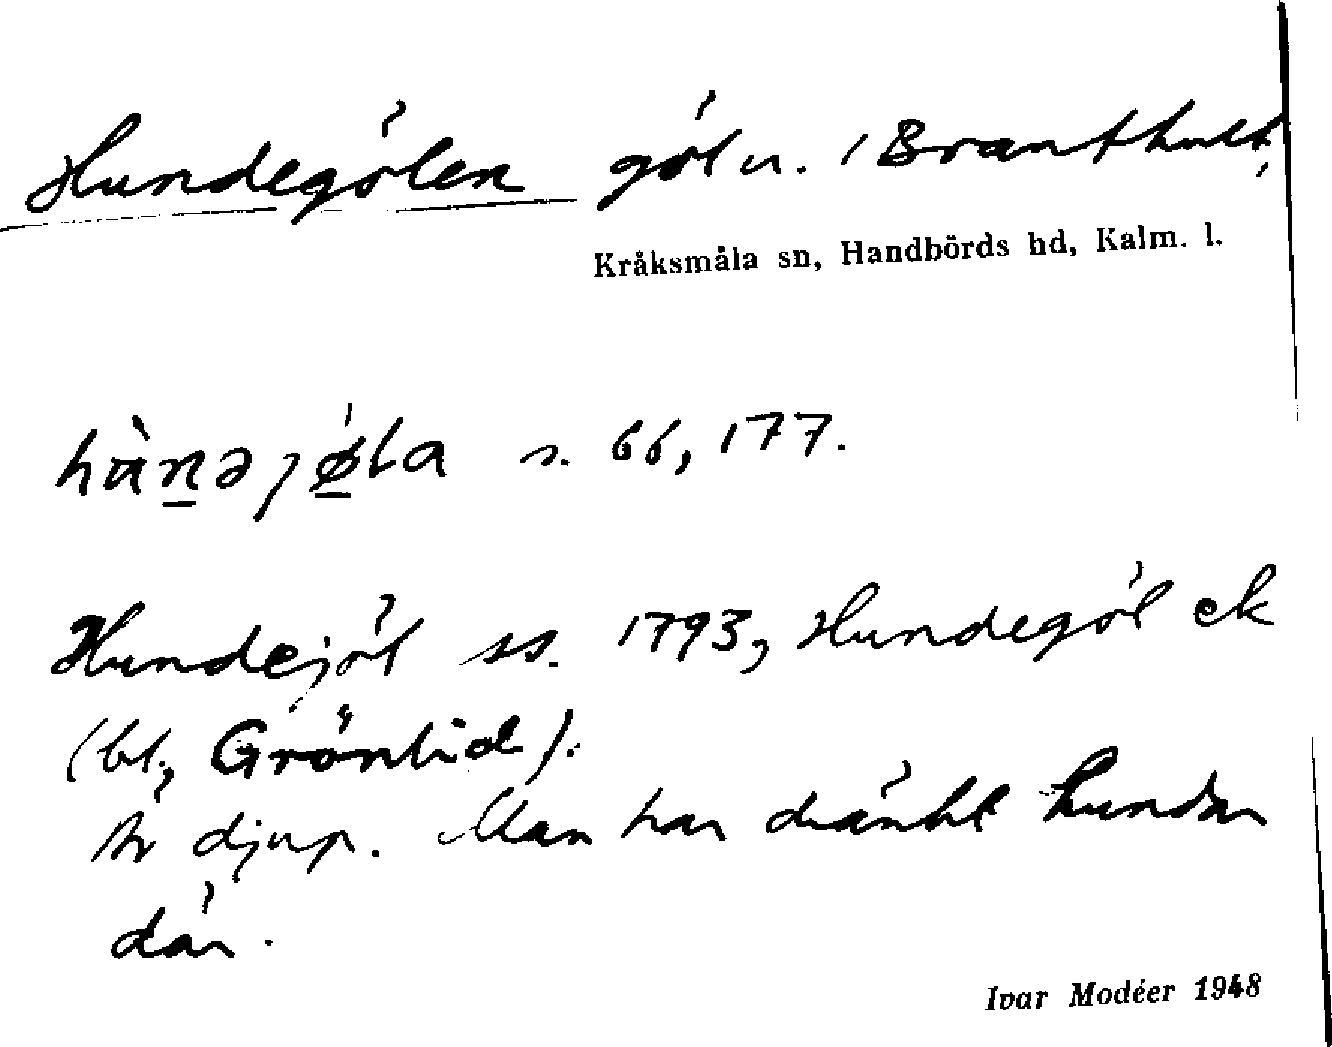 Hundegölen göl n. i Branthult,
Kråksmåla sn, Handbörds hd, Kalm. l.
hùn̲əjǿ̲la s. 66, 177.
Hundejöl ss. 1793, Hundegöl ek
(bl, Grönlid).
Är djup. Man har dränkt hundar
där.
Ivar Modéer 1948